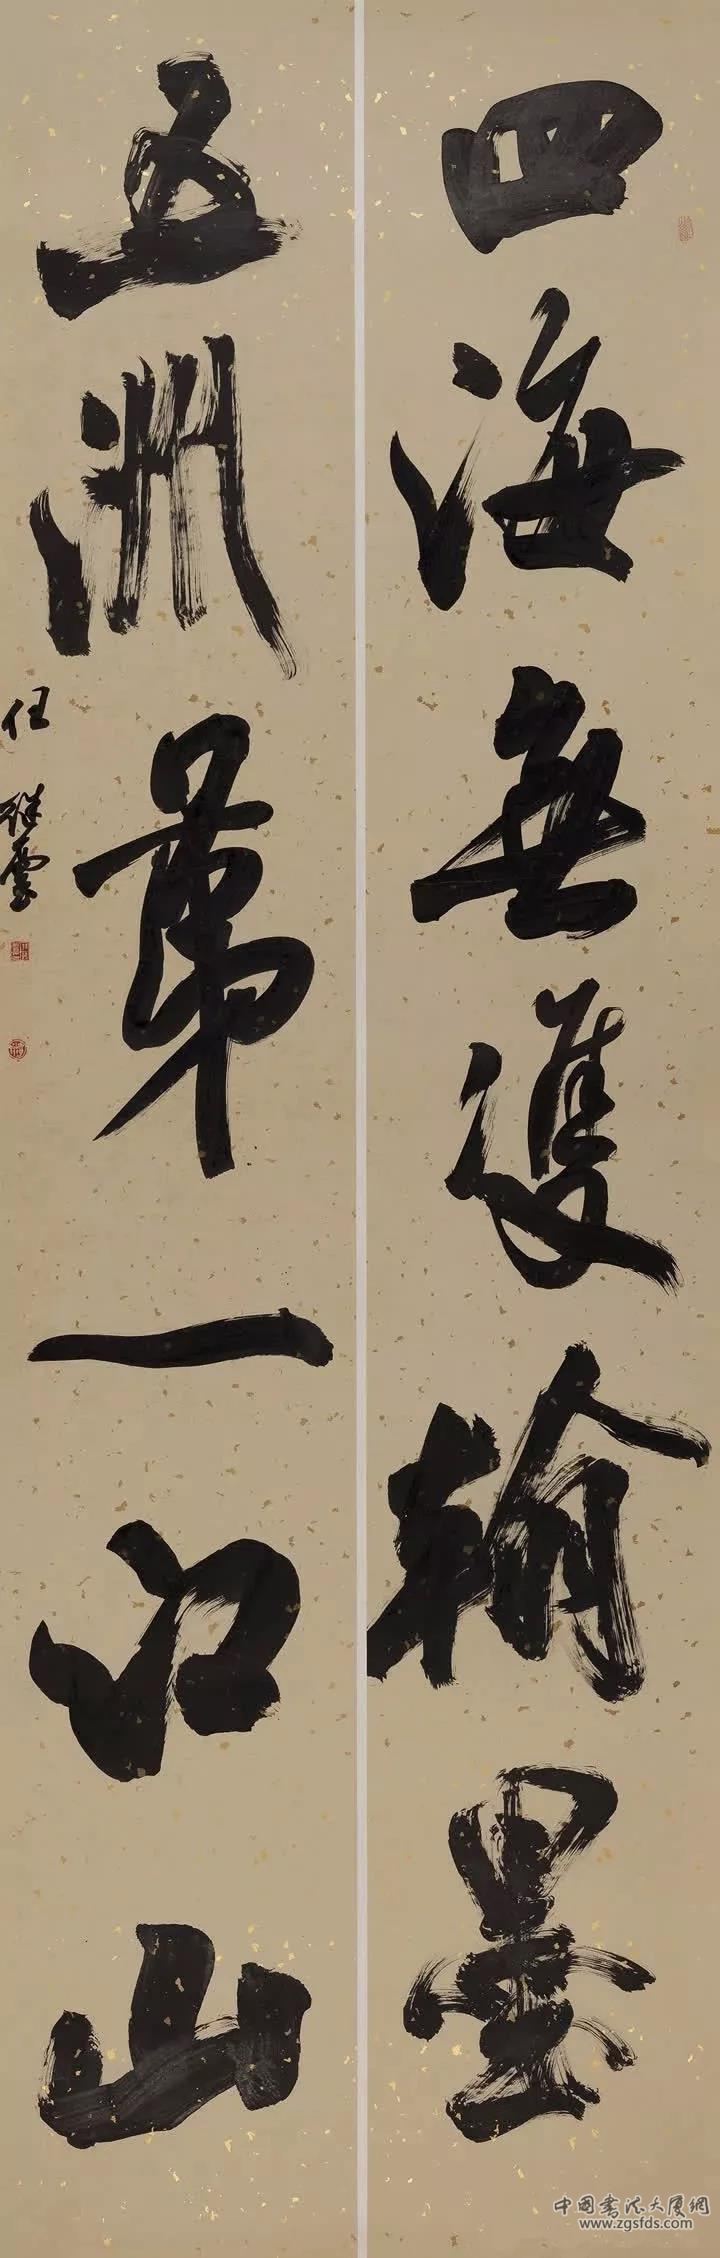 四海無雙翰墨
五洲第一江山
任继雲
中国书法大厦網
www.zgsfds.com